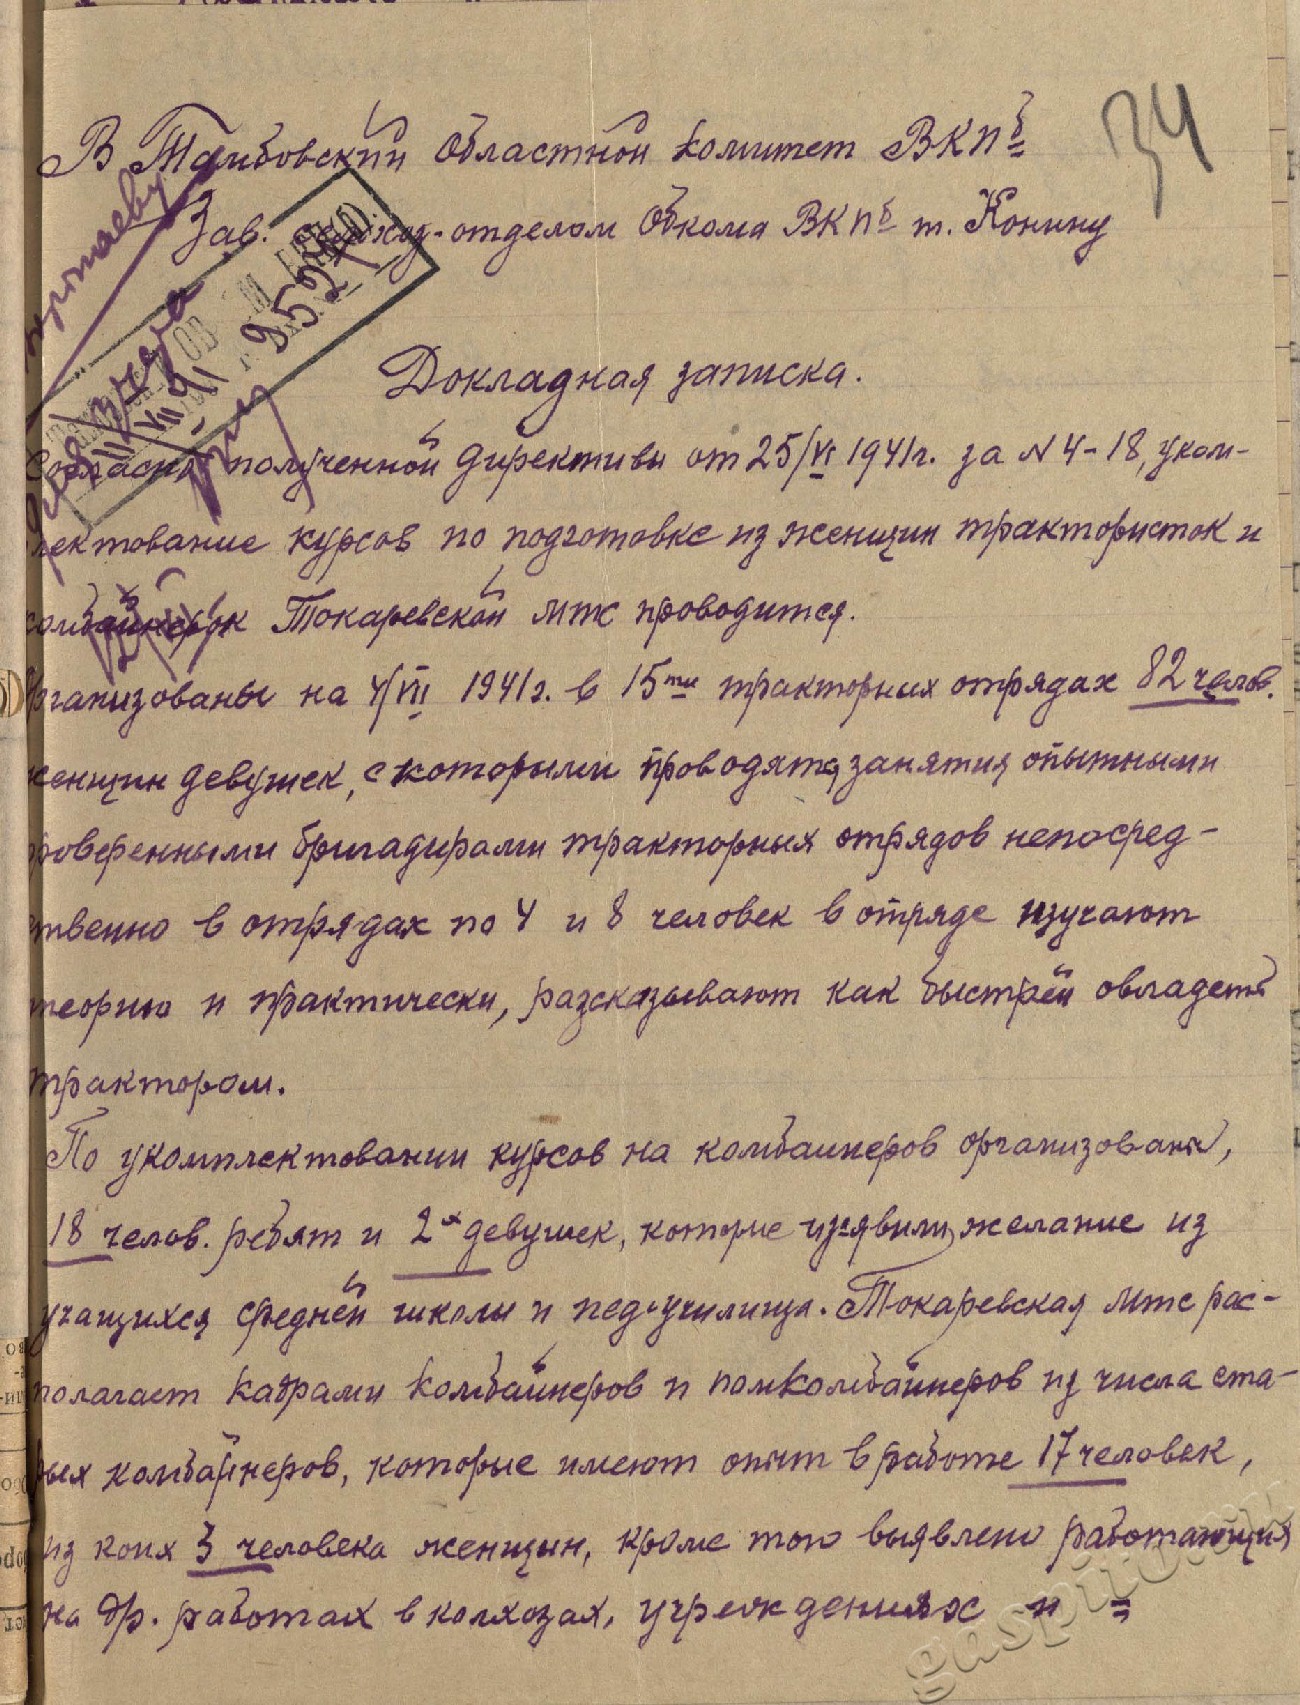 34
В Тамбовский Областной комитет ВКПб
Зав. отделом Обкома ВКПб т. Конину
9527
Докладная записка.
Согласно полученной директивы от 25/VI 1941г. за N 4-18, уком-
лектование курсов по подготовке из женщин трактористок и
комбайнерок Токаревской мтс проводится.
Организованы на 4/VII 1941г. в 15ти тракторных отрядах 82 челов.
женщин девушек, с которыми проводятся занятия опытными
проверенными бригадирами тракторных отрядов непосред-
ственно в отрядах по 4 и 8 человек в отряде изучают
теорию и практически, разсказывают как быстрей овладеть
трактором.
По укомплектовании курсов на комбаинеров организованы,
18 челов. ребят и 2х девушек, которые изъявили желание из
учащихся средней школы и пед-училища. Токаревская мтс рас-
полагает кадрами комбайнеров и помкомбайнеров из числа ста-
рых комбайнеров, которые имеют опыт в работе 17 человек,
из коих 3 человека женщин, кроме того выявлено работающих
на др. работах в колхозах, учреждениях и =
gaspito.ru